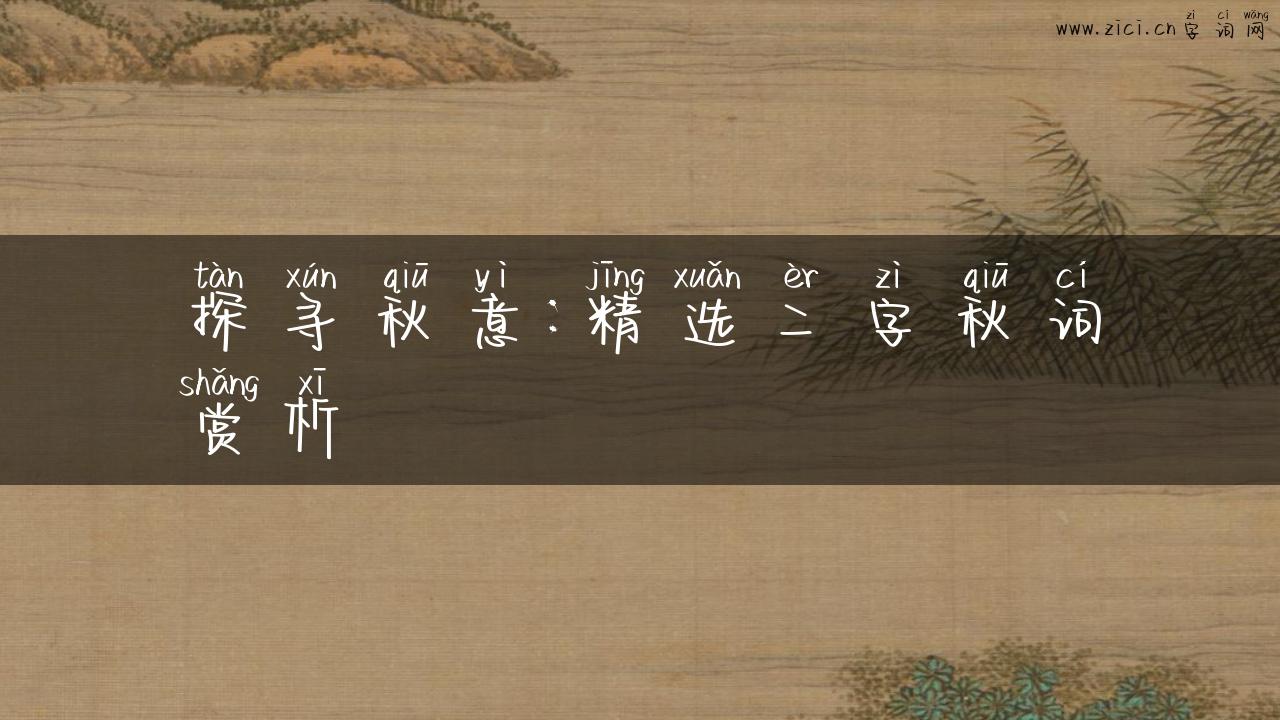 www.zici.cn字词网
zì cí wǎng
tàn xún qiū yì jīng xuǎn èr zì qiū cí
探寻秋意:精选二字秋词
shǎng xī
赏析